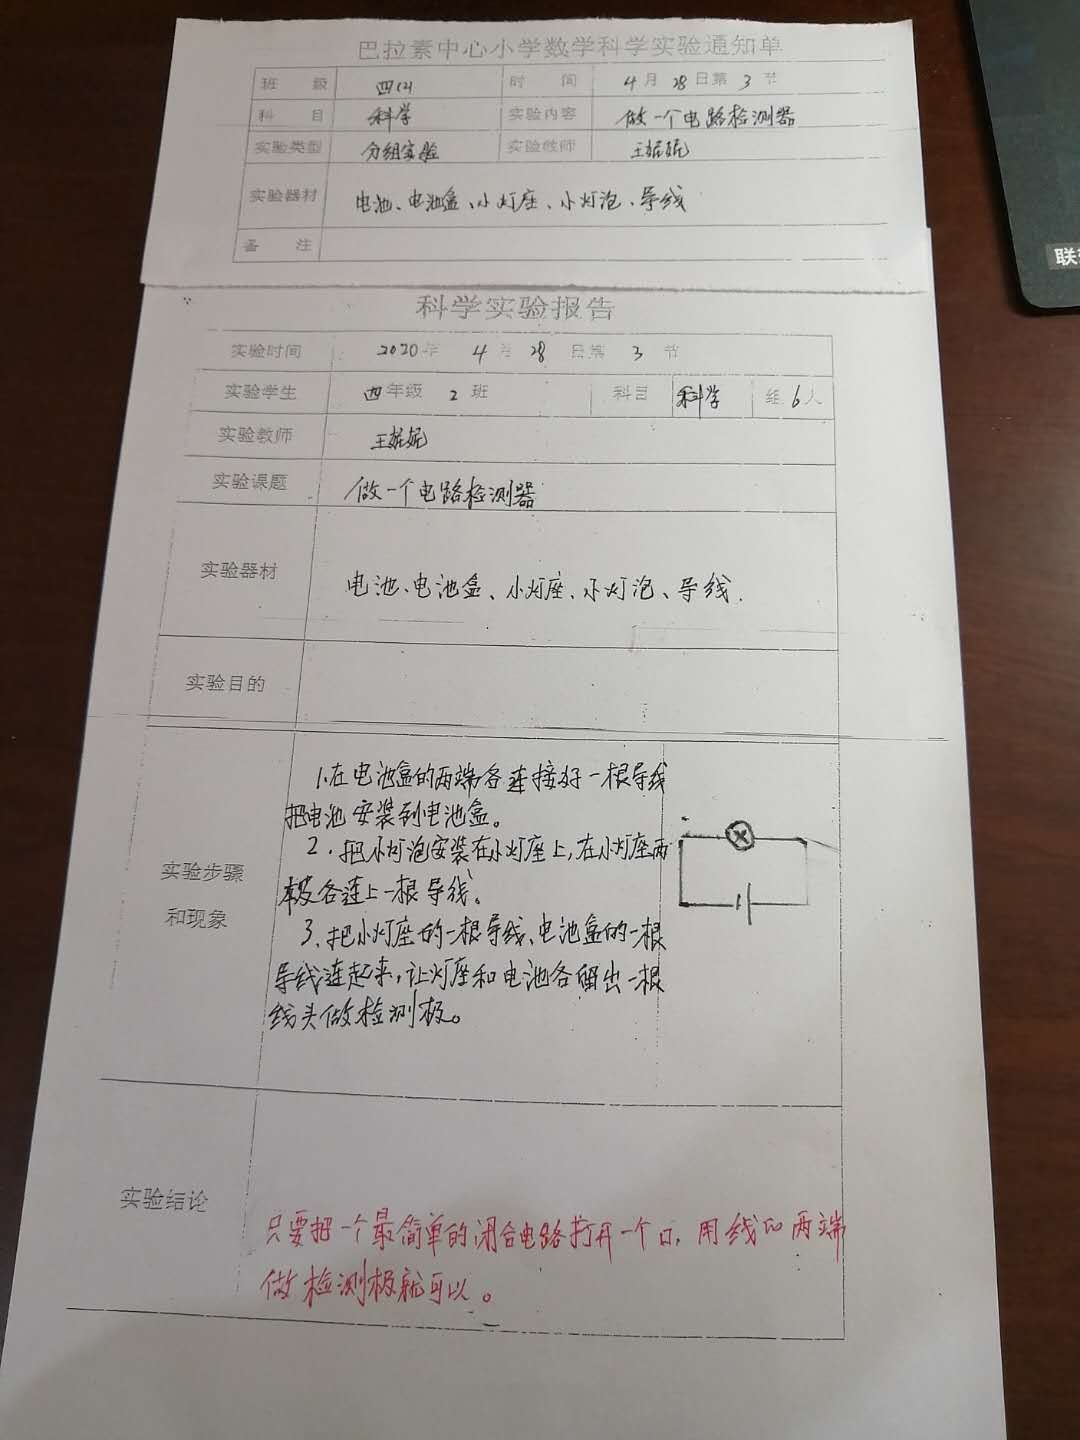 巴拉素中心小学数学科学实验通知单
班 级 四(2) 时 间 4月28日第3节
科 目 科学 实验内容 做一个电路检测器
实验类型 分组实验 实验教师 王妮妮
实验器材 电池、电池盒、小灯座、小灯泡、导线
备 注
科学实验报告
实验时间 2020年 4月28日第3节
实验学生 四年级2班 科目 科学 组6人
实验教师 王妮妮
实验课题 做一个电路检测器
实验器材 电池、电池盒、小灯座、小灯泡、导线.
实验目的
实验步骤
和现象
1.在电池盒的两端各连接好一根导线
把电池安装到电池盒。
2.把小灯泡安装在小灯座上,在小灯座两
极各连上一根导线。
3.把小灯座的一根导线、电池盒的一根
导线连起来,让灯座和电池各留出一根
线头做检测极。
实验结论
只要把一个最简单的闭合电路打开一个口,用线的两端
做检测极就可以。
联